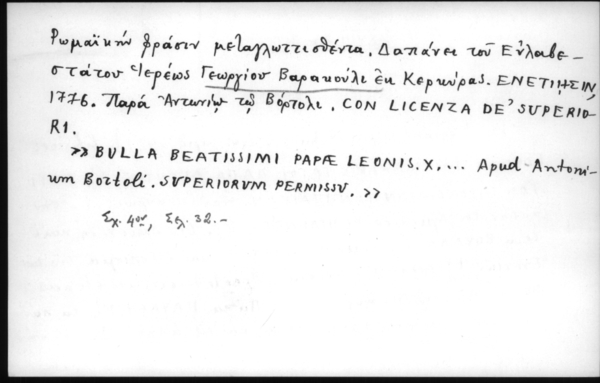 Ρωμαϊκήν φράσιν μεταγλωττισθέντα. Δαπάνει τοῦ Εὐλαβε-
στάτου Ἱερέως Γεωργίου Βαρακούλε ἐκ Κερκύρας. ΕΝΕΤΙΗΣΙΝ,
1776. Παρά Ἀντωνίῳ τῷ Βόρτολι. CON LICENZA DE' SUPERIO-
RI.
» BULLA BEATISSIMI PAPÆ LEONIS. X. ... Apud Antoni-
um Bortoli. SUPERIORUM PERMISSU. »
Σχ. 4ον, Σελ. 32.-